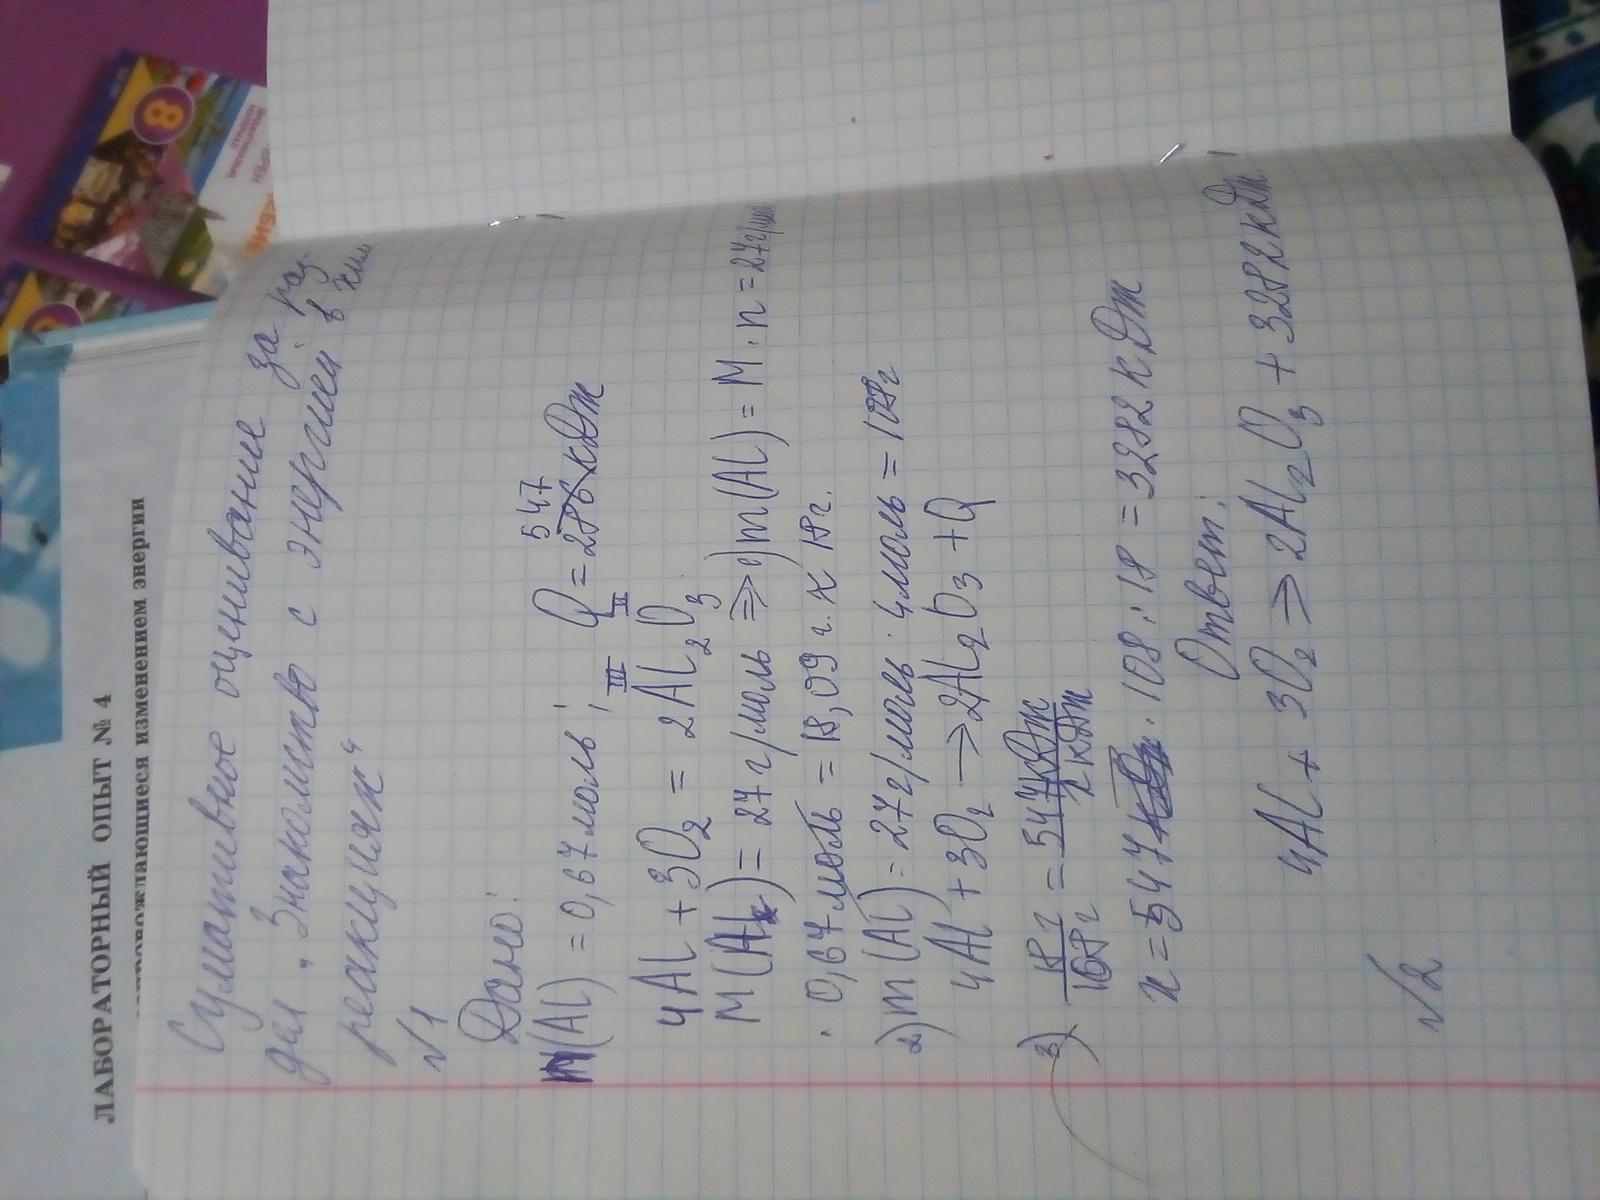 ЛАБОРАТОРНЫЙ ОПЫТ № 4
сопровождающиеся изменением энергии
Сумативное оценивание за раз-
дел "Знакомство с энергией в хим
реакциях"
№1
Дано:
n(Al) = 0,67 моль; Q = 547 кДж
4Al + 3O2 = 2Al2O3
M(Al) = 27 г/моль => 1) m(Al) = M · n = 27 г/моль
· 0,67 моль = 18,09 г. ≈ 18 г.
2) m(Al) = 27 г/моль · 4 моль = 108 г
4Al + 3O2 → 2Al2O3 + Q
3) 18 г / 108 г = 547 кДж / x кДж
x = 547 · 108 : 18 = 3282 кДж
Ответ:
4Al + 3O2 → 2Al2O3 + 3282 кДж
№2
8